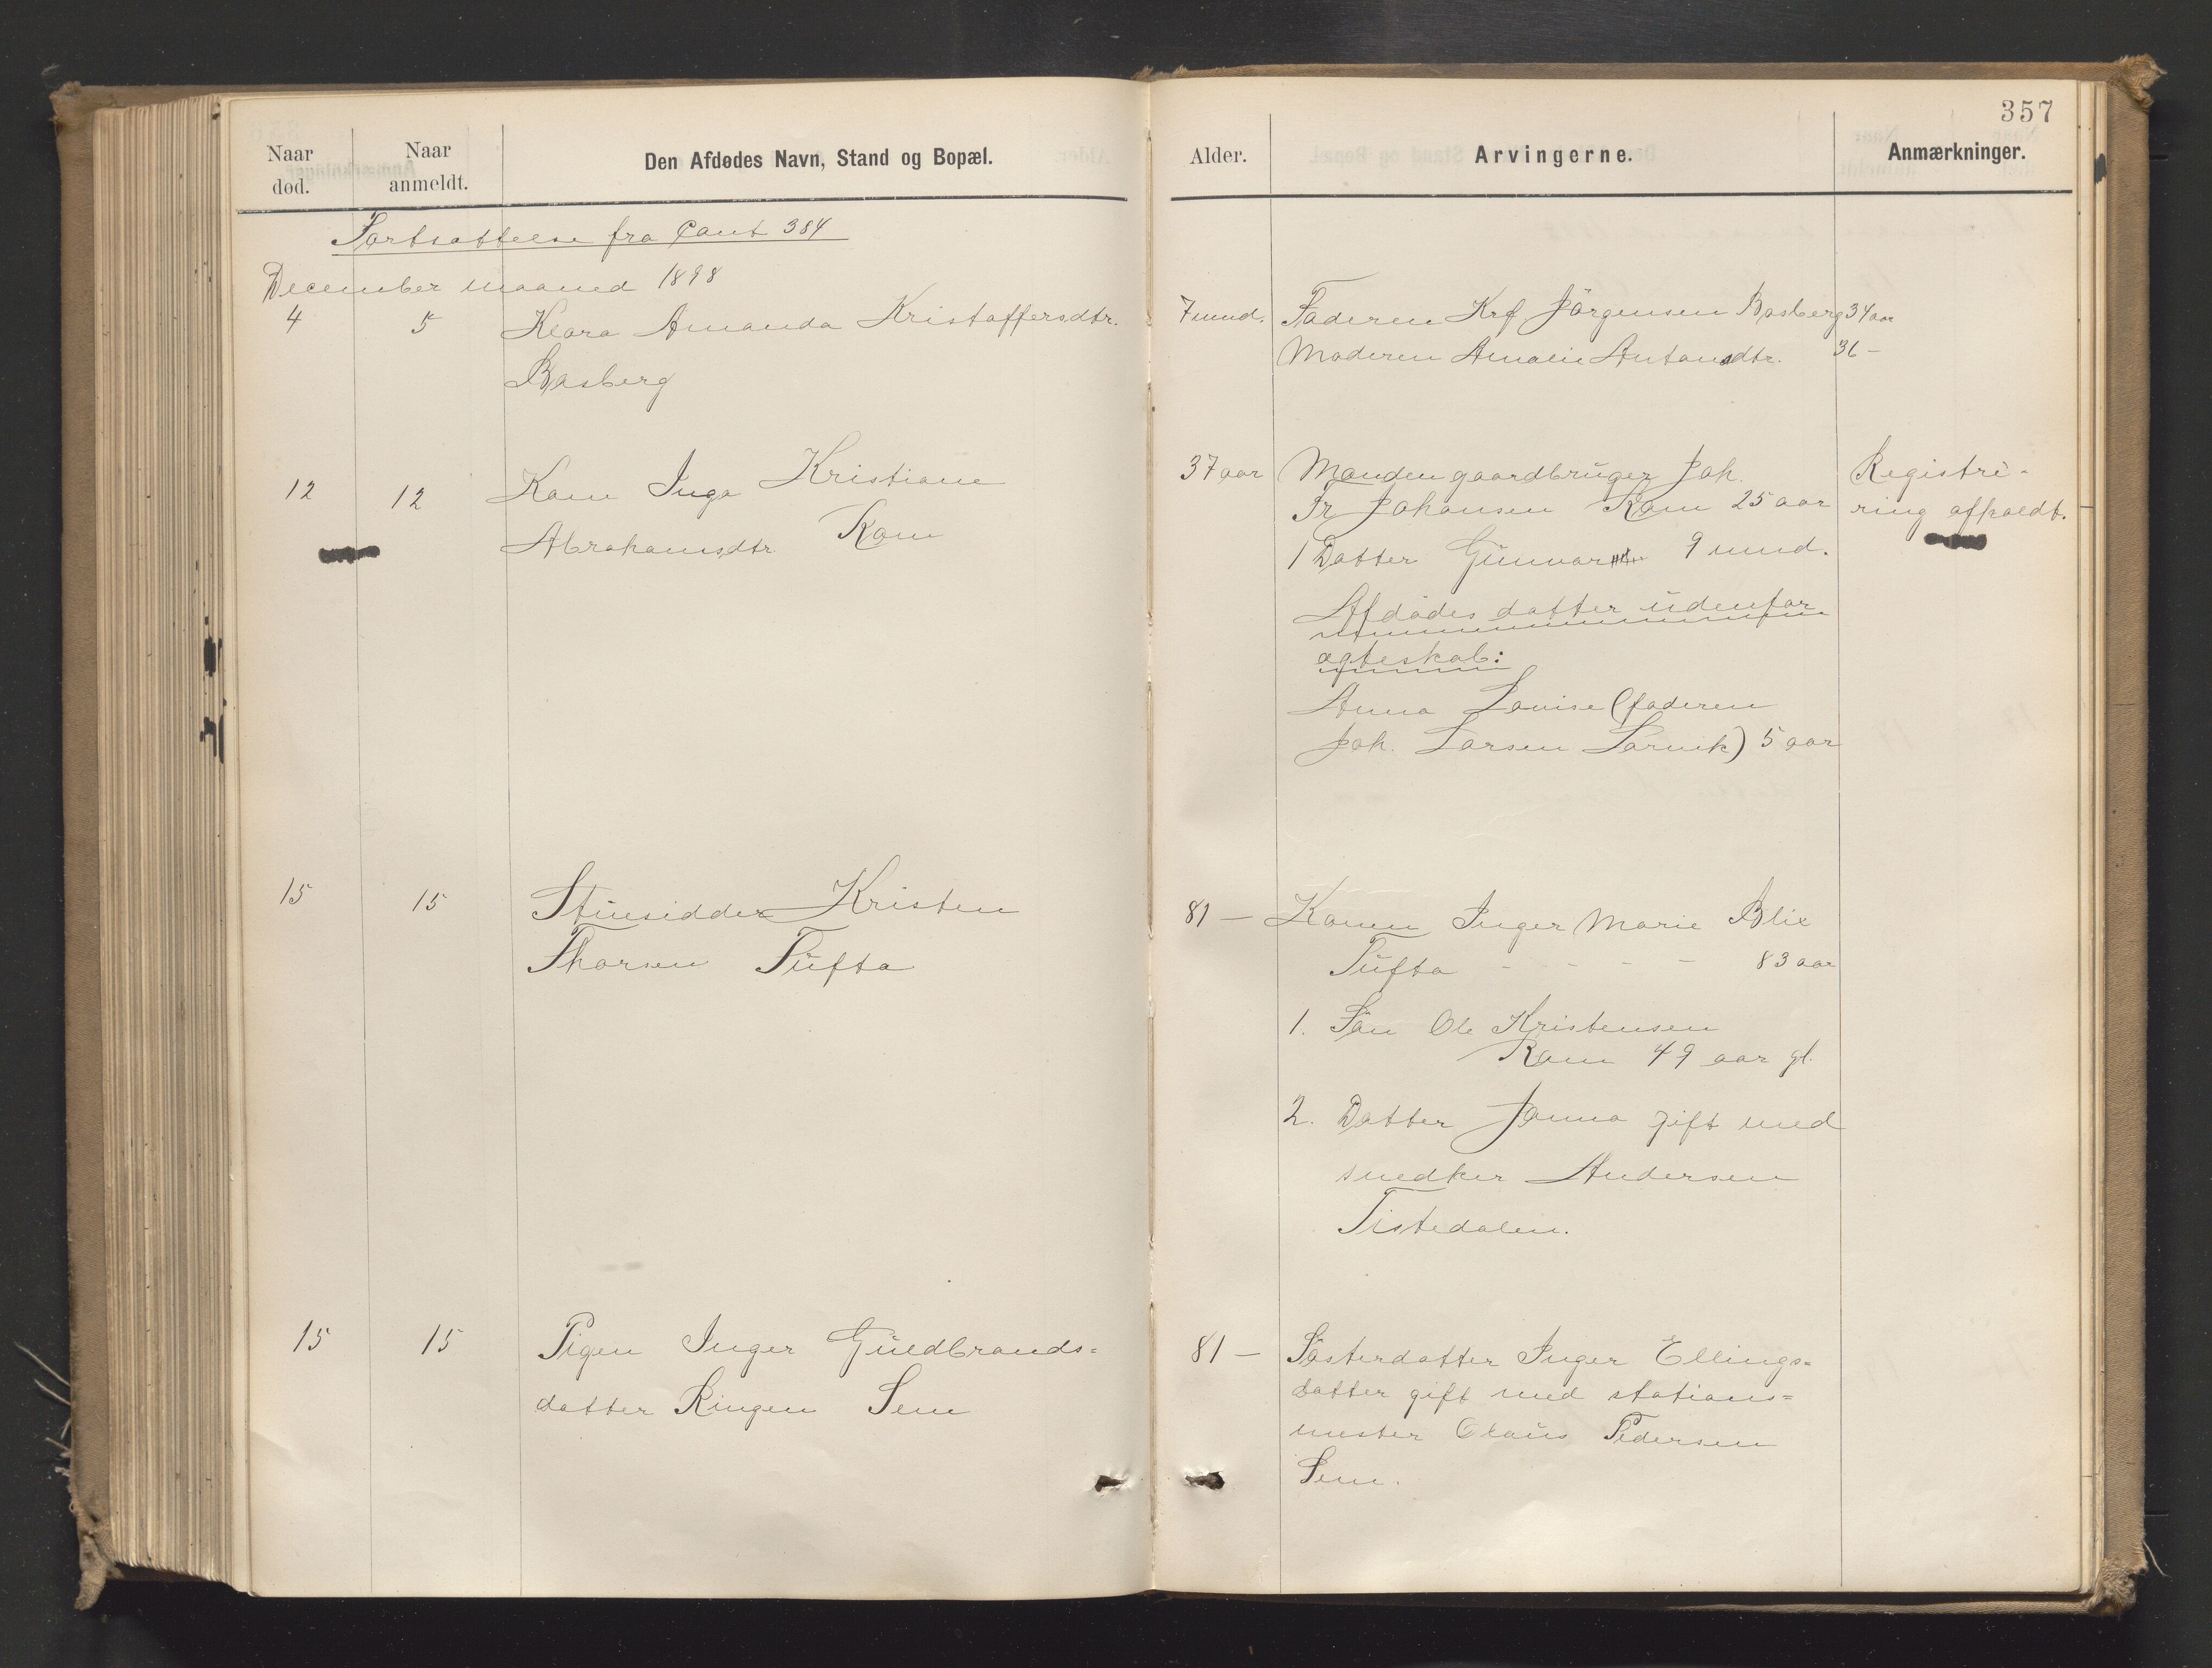 357
Naar død.
Naar anmeldt.
Den Afdødes Navn, Stand og Bopæl.
Alder.
Arvingerne.
Anmærkninger.
Fortsættelse fra Pant 384
December maaned 1898
4 5 Klara Amanda Kristoffersdtr. 7 mnd. Faderen Krf Jörgensen Basberg 34 aar
Basberg Moderen Amalie Antonsdtr. 36 –
12 12 Kone Inga Kristiane 37 aar Manden gaardbruger Joh. Registre-
Abrahamsdtr Ram Fr Johansen Ram 25 aar ring afholdt.
1 Datter Gunvor 9 mnd.
Afdødes datter udenfor
ægteskab:
Anna Lovise (faderen
Joh. Larsen Larvik) 5 aar
15 15 Stuesidder Kristen 81 – Konen Inger Marie Blix
Thorsen Tufta Tufta - - - - 83 aar
1. Sön Ole Kristensen
Ram 49 aar gl.
2. Datter Janna gift med
snedker Andersen
Tistedalen.
15 15 Pigen Inger Guldbrands= 81 – Sösterdatter Inger Ellings=
datter Ringen Sem datter gift med stations=
mester Olaus Pedersen
Sem.